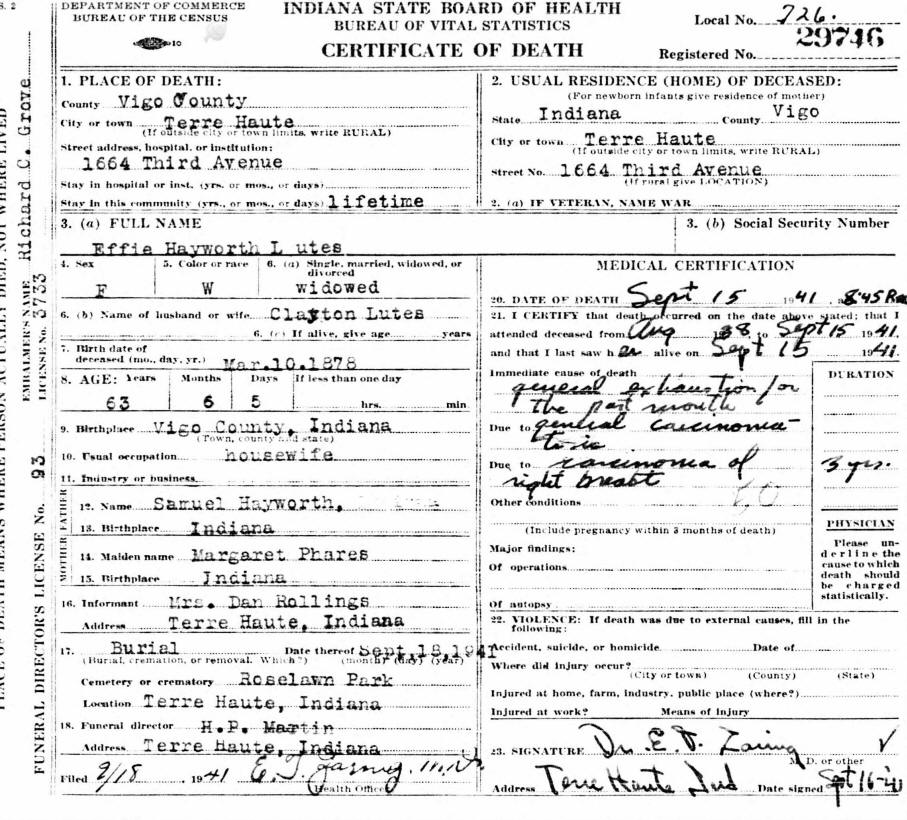 S. 2
DEPARTMENT OF COMMERCE
BUREAU OF THE CENSUS
INDIANA STATE BOARD OF HEALTH
BUREAU OF VITAL STATISTICS
CERTIFICATE OF DEATH
Local No. 726.
Registered No. 29746
1. PLACE OF DEATH:
County Vigo County
City or town Terre Haute
(If outside city or town limits, write RURAL)
Street address, hospital, or institution:
1664 Third Avenue
Stay in hospital or inst. (yrs. or mos., or days)
Stay in this community (yrs., or mos., or days) lifetime
2. USUAL RESIDENCE (HOME) OF DECEASED:
(For newborn infants give residence of mother)
State Indiana County Vigo
City or town Terre Haute
(If outside city or town limits, write RURAL)
Street No. 1664 Third Avenue
(If rural give LOCATION)
2. (a) IF VETERAN, NAME WAR
3. (a) FULL NAME
Effie Hayworth L utes
3. (b) Social Security Number
4. Sex F
5. Color or race W
6. (a) Single, married, widowed, or divorced
widowed
6. (b) Name of husband or wife Clayton Lutes
6. (c) If alive, give age years
7. Birth date of
deceased (mo., day, yr.) Mar.10.1878
8. AGE: Years Months Days If less than one day
63 6 5 hrs. min
9. Birthplace Vigo County, Indiana
(Town, county and state)
10. Usual occupation housewife
11. Industry or business
FATHER
12. Name Samuel Hayworth,
13. Birthplace Indiana
MOTHER
14. Maiden name Margaret Phares
15. Birthplace Indiana
16. Informant Mrs. Dan Rollings
Address Terre Haute, Indiana
17. Burial Date thereof Sept.18.1941
(Burial, cremation, or removal. Which?) (month) (day) (year)
Cemetery or crematory Roselawn Park
Location Terre Haute, Indiana
18. Funeral director H.P. Martin
Address Terre Haute, Indiana
Filed 9/18 1941
Health Officer
MEDICAL CERTIFICATION
20. DATE OF DEATH Sept 15 1941 8:45
21. I CERTIFY that death occurred on the date above stated; that I
attended deceased from Aug 1938, to Sept 15 1941.
and that I last saw her alive on Sept 15 1941.
Immediate cause of death
DURATION
general exhaustion for
the past month
Due to general carcinoma-
tosis
Due to carcinoma of 3 yrs.
right breast
Other conditions
(Include pregnancy within 3 months of death)
Major findings:
Of operations
Of autopsy
PHYSICIAN
Please un-
derline the
cause to which
death should
be charged
statistically.
22. VIOLENCE: If death was due to external causes, fill in the
following:
Accident, suicide, or homicide Date of
Where did injury occur?
(City or town) (County) (State)
Injured at home, farm, industry, public place (where?)
Injured at work? Means of injury
23. SIGNATURE Dr. E. T. Zaring
M. D. or other
Address Terre Haute Ind Date signed Sept 16-41
EMBALMER'S NAME Richard C. Grove
LICENSE No. 3733
FUNERAL DIRECTOR'S LICENSE No. 93
PLACE OF DEATH MEANS WHERE PERSON ACTUALLY DIED, NOT WHERE LIVED